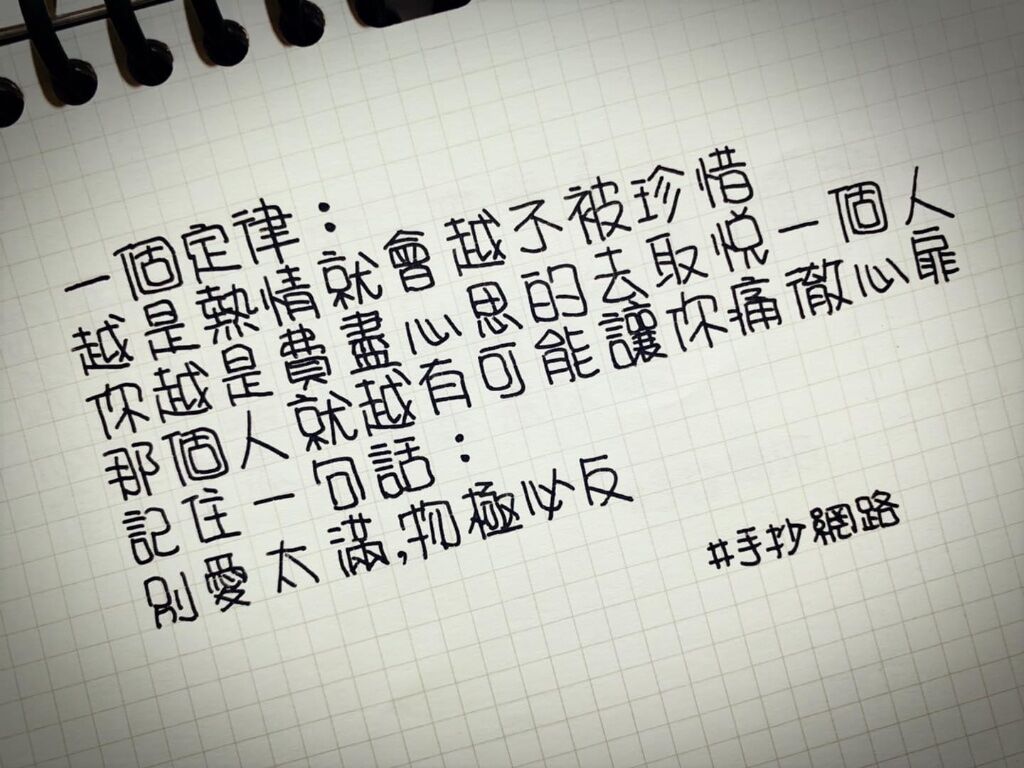 一個定律：
越是熱情就會越不被珍惜
你越是費盡心思的去取悅一個人
那個人就越有可能讓你痛徹心扉
記住一句話：
別愛太滿,物極必反
#手抄網路